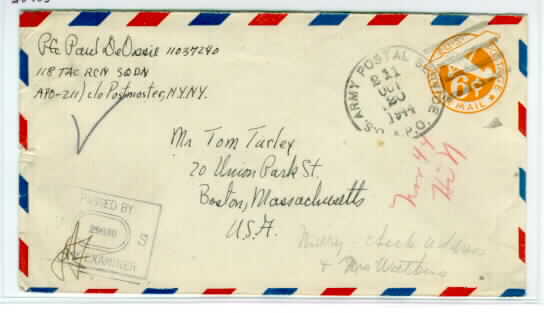 Pfc Paul DeOssie 11037240
118 TAC RCN SQDN
APO-211) c/o Postmaster, N.Y.N.Y.
ARMY POSTAL
A.P.O.
211
OCT
20
1944
6¢
MAIL
Mr Tom Turley
20 Union Park St.
Boston, Massachusetts
U.S.A.
Nov 44
PASSED BY
S
EXAMINER
& Mrs Watkins